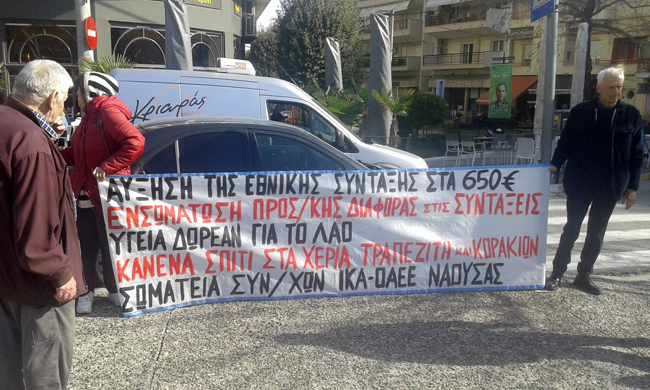 Κριαράς
ΑΥΞΗΣΗ ΤΗΣ ΕΘΝΙΚΗΣ ΣΥΝΤΑΞΗΣ ΣΤΑ 650 €
ΕΝΣΩΜΑΤΩΣΗ ΠΡΟΣ/ΚΗΣ ΔΙΑΦΟΡΑΣ ΣΤΙΣ ΣΥΝΤΑΞΕΙΣ
ΥΓΕΙΑ ΔΩΡΕΑΝ ΓΙΑ ΤΟ ΛΑΟ
ΚΑΝΕΝΑ ΣΠΙΤΙ ΣΤΑ ΧΕΡΙΑ ΤΡΑΠΕΖΙΤΗ ΚΑΙ ΚΟΡΑΚΙΩΝ
ΣΩΜΑΤΕΙΑ ΣΥΝ/ΧΩΝ ΙΚΑ-ΟΑΕΕ ΝΑΟΥΣΑΣ